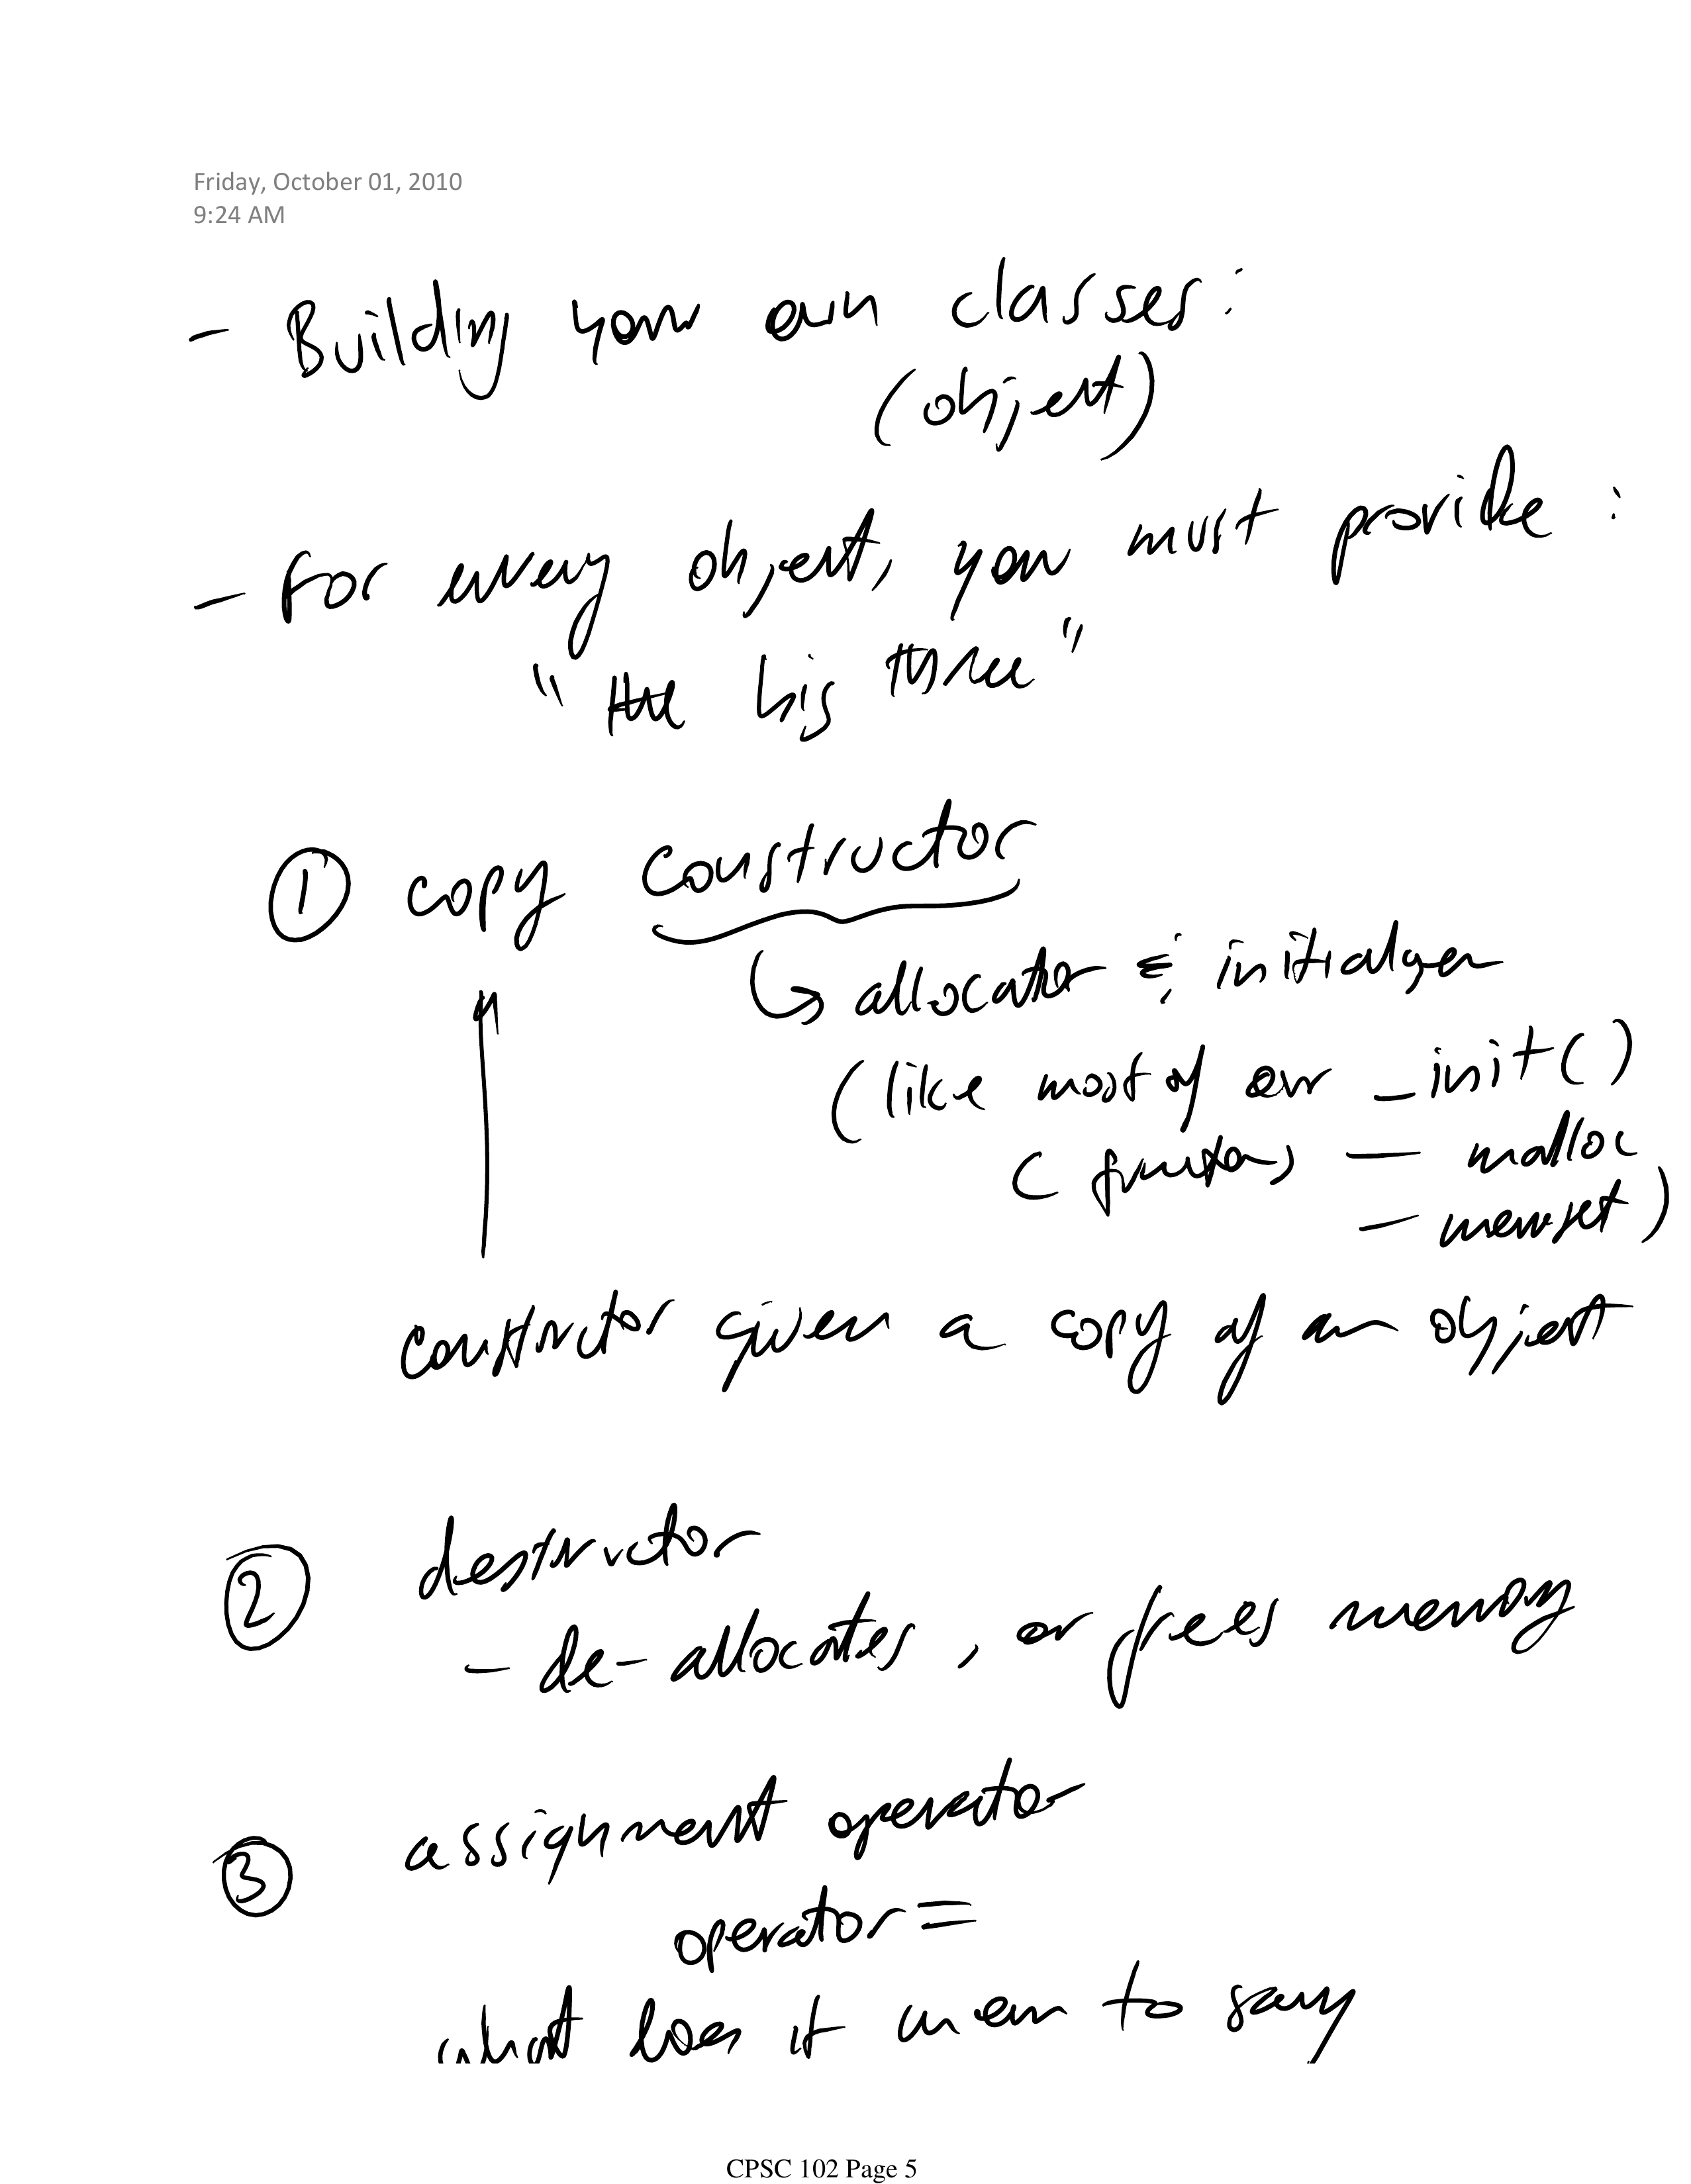 Friday, October 01, 2010
9:24 AM
- Building your own classes:
(object)
- for every object, you must provide :
"the big three"
① copy constructor
↳ allocator & initializer
(like most of our _init()
( functions — malloc
— memset)
constructor given a copy of an object
② destructor
- de-allocates, or frees memory
③ assignment operator
operator=
what does it mean to say
CPSC 102 Page 5